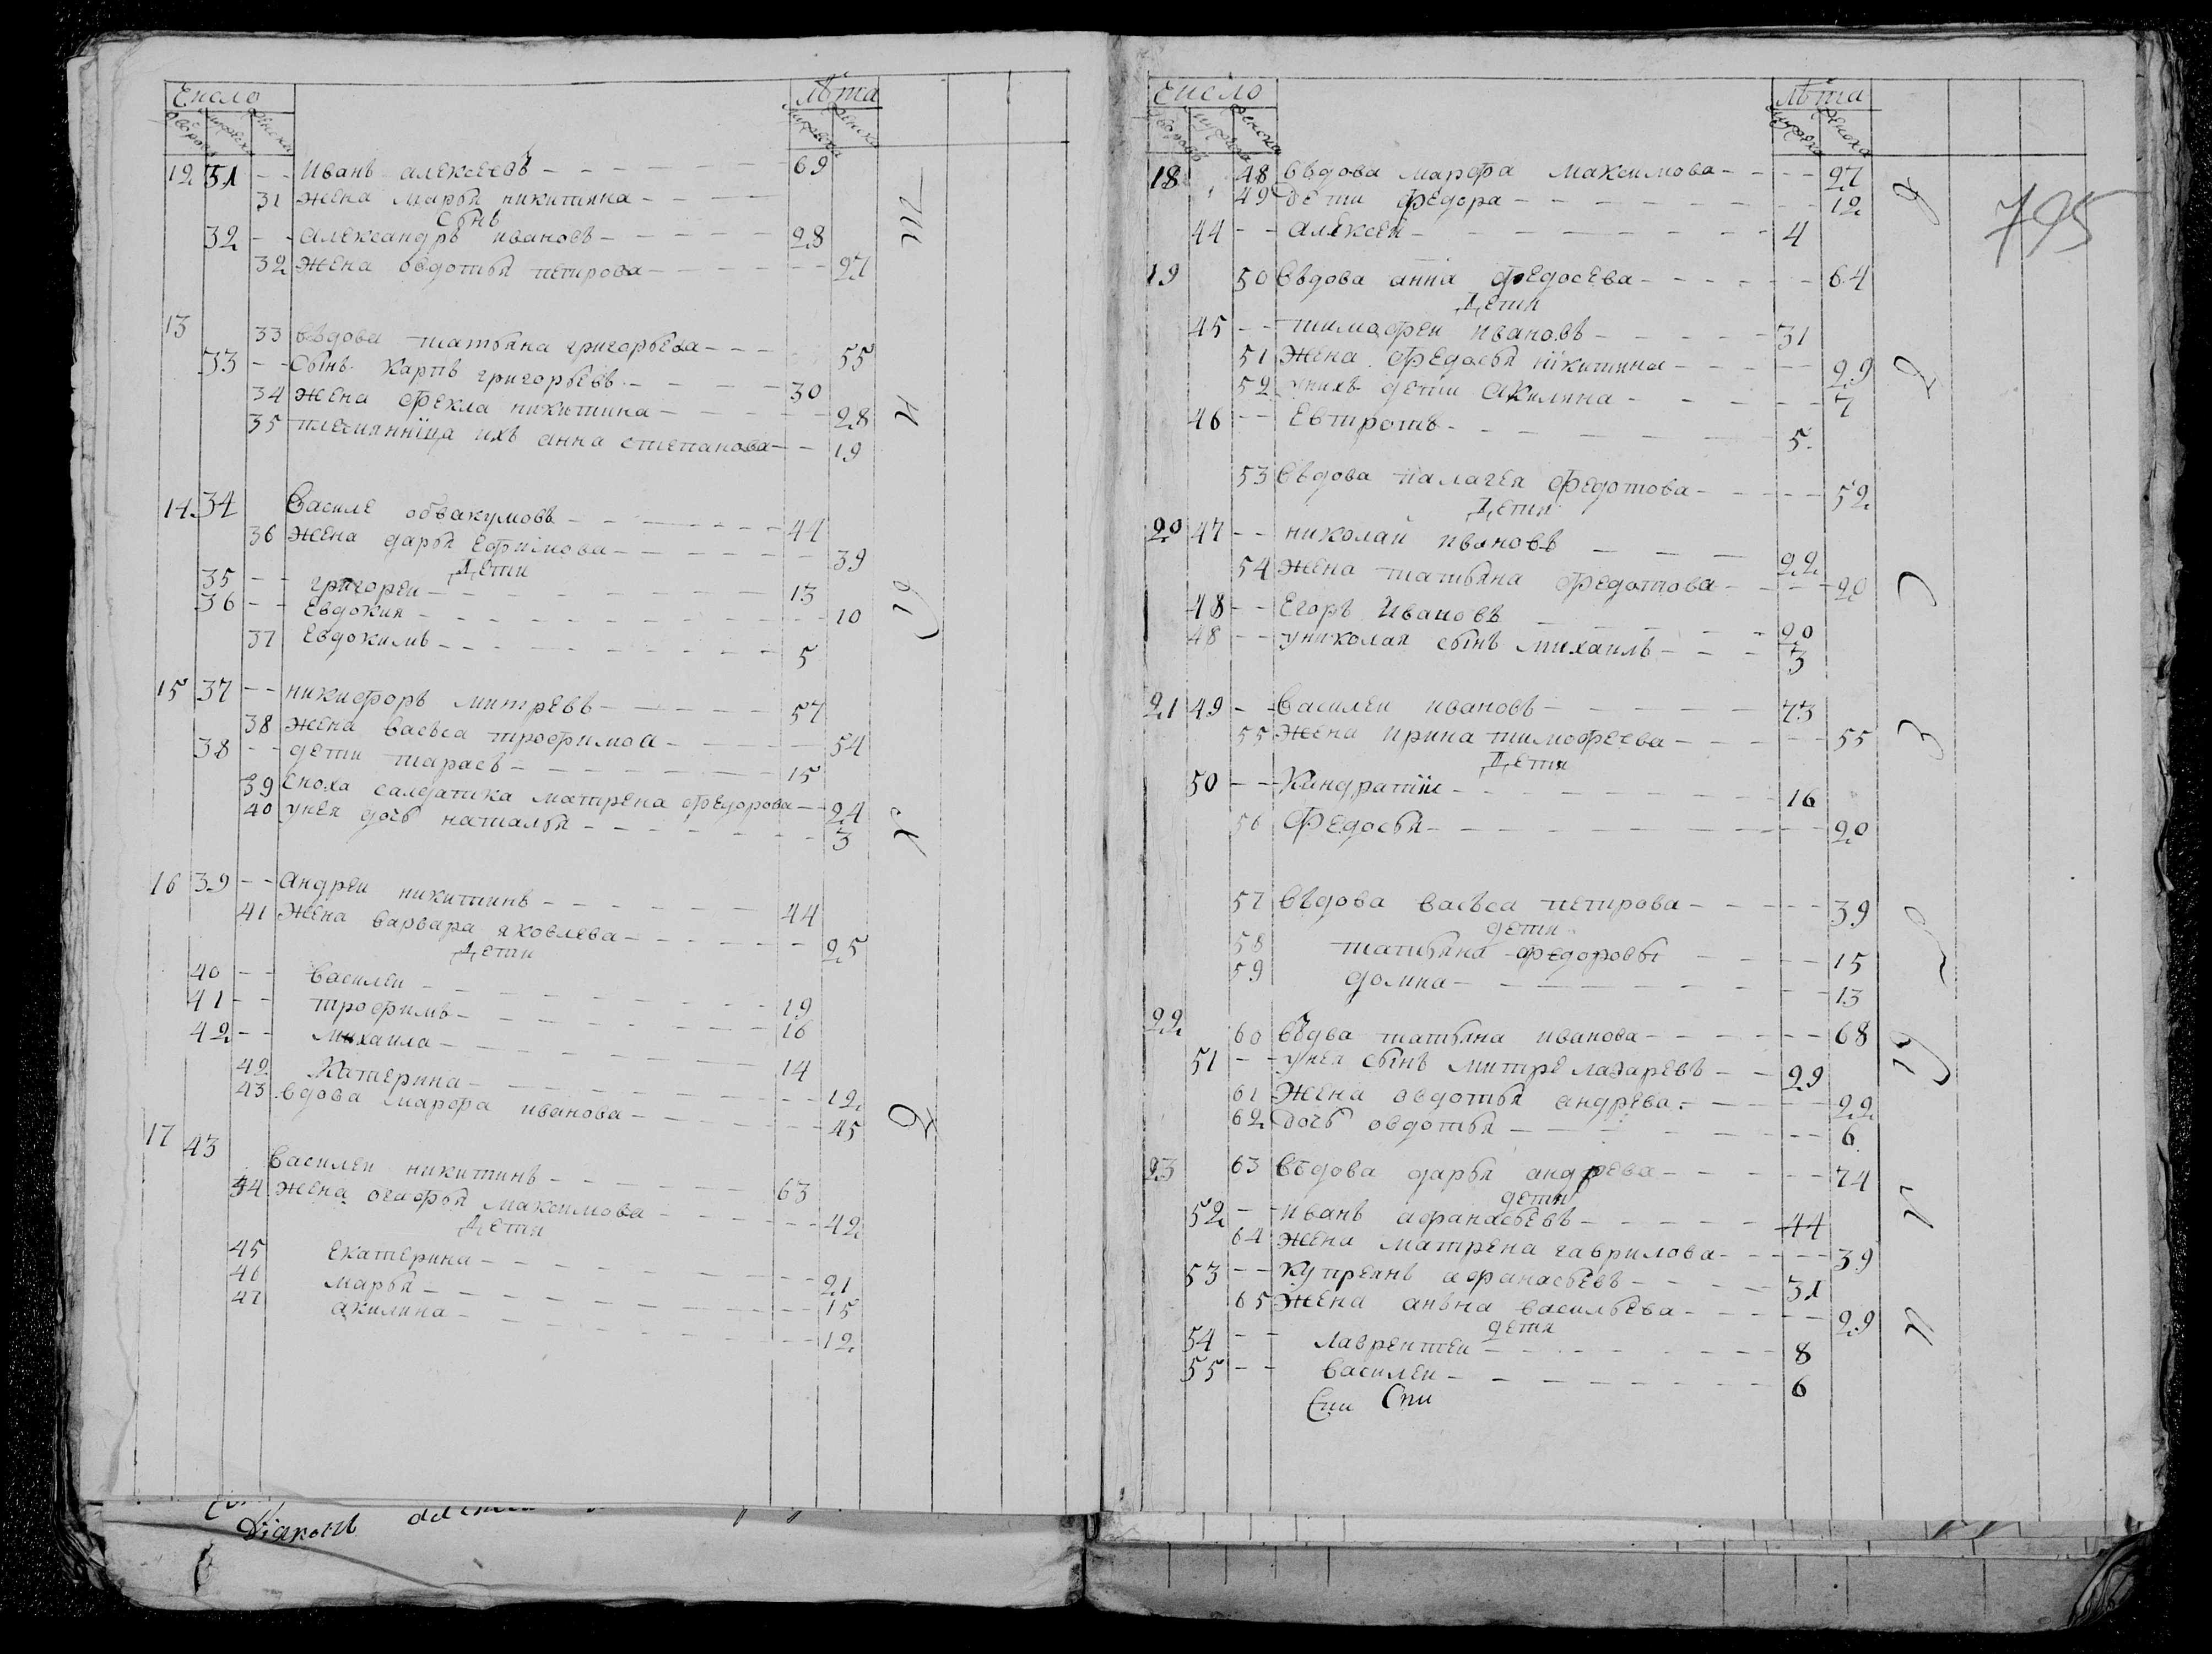 Число Лѣта
дворовъ мужеска женска мужеска женска
12 31 -- Иванъ алексеевъ 69
31 жена марья никитина
Сынъ
32 -- александръ ивановъ 28
32 жена овдотья петрова 27
13 33 въдова татьяна григорьева 55
33 -- Сынъ карпъ григорьевъ 30
34 жена фекла никитина 28
35 племянница ихъ анна степанова 19
14 34 Василе обвакумовъ 41
36 жена дарья ефимова 39
Дети
35 -- григореи 13
36 -- Евдокия 10
37 Евдокимъ 5
15 37 -- никифоръ митревъ 57
38 жена васъса трофимоа 54
38 -- дети тарасъ 15
39 Сноха салдатка матрена федорова 24
40 унея дочь наталья 3
16 39 -- андреи никитинъ 44
41 жена варвара яковлева 25
Дети
40 -- василеи 19
41 -- трофимъ 16
42 -- михаила 14
42 Катерина 12
43 вдова марфа иванова 45
17 43 василеи никитинъ 63
44 жена огафья максимова 42
Дети
45 екатерина 21
46 марья 15
47 акилина 12
Диаконъ
795
Число Лѣта
дворовъ мужеска женска мужеска женска
18 48 въдова марфа максимова 27
49 дети федора 12
44 -- алексеи 4
19 50 въдова анна федосева 64
Дети
45 -- тимофеи ивановъ 31
51 жена федосья никитина 29
52 унихъ дети акилина 7
46 -- Евтропъ 5
53 въдова палагея федотова 52
Дети
20 47 -- николаи ивановъ 22
54 жена татьяна федотова 20
48 -- Егоръ ивановъ 20
48 -- униколая сынъ михаилъ 3
21 49 -- василеи ивановъ 73
55 жена ирина тимофеева 55
Дети
50 -- Киндратии 16
56 Федосья 20
57 въдова васъса петрова 39
дети
58 татьяна федоровы 15
59 домна 13
22 60 въдва татьяна иванова 68
51 -- унея сынъ митре лазаревъ 29
61 жена овдотья андрева 22
62 дочь овдотья 6
23 63 въдова дарья андрева 74
дети
52 -- иванъ афанасьевъ 44
64 жена матрена гаврилова 39
53 -- купреянъ афанасьевъ 31
65 жена анъна васильева 29
дети
54 -- лаврентеи 8
55 -- василеи 6